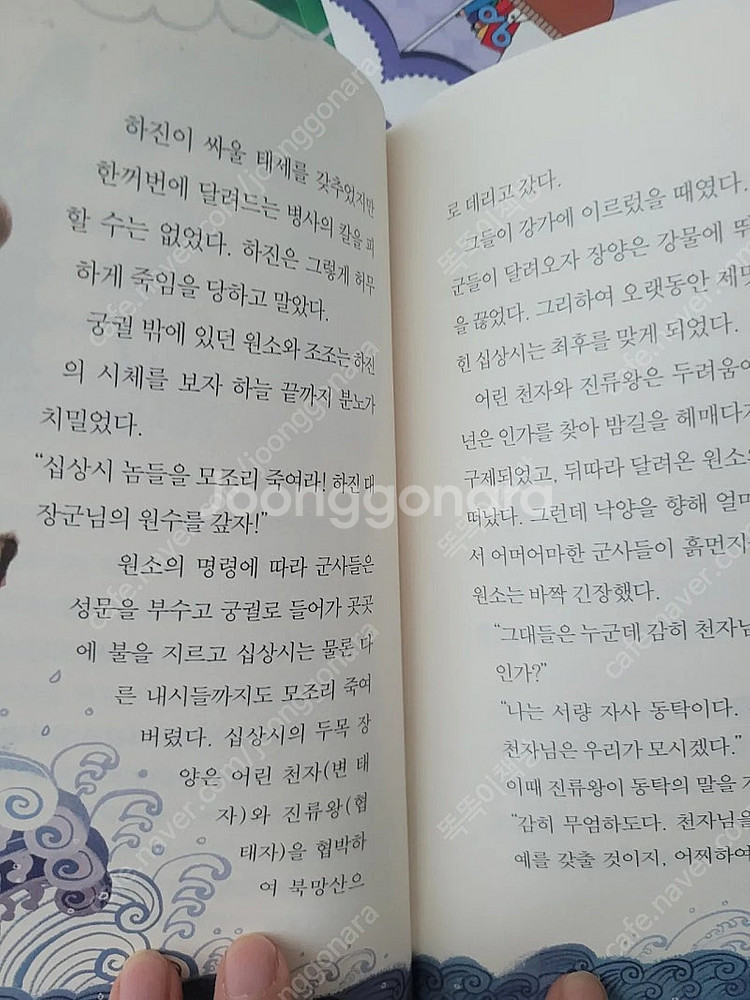 하진이 싸울 태세를 갖추었지만
한꺼번에 달려드는 병사의 칼을 피
할 수는 없었다. 하진은 그렇게 허무
하게 죽임을 당하고 말았다.
궁궐 밖에 있던 원소와 조조는 하진
의 시체를 보자 하늘 끝까지 분노가
치밀었다.
“십상시 놈들을 모조리 죽여라! 하진 대
장군님의 원수를 갚자!”
원소의 명령에 따라 군사들은
성문을 부수고 궁궐로 들어가 곳곳
에 불을 지르고 십상시는 물론 다
른 내시들까지도 모조리 죽여
버렸다. 십상시의 두목 장
양은 어린 천자(변 태
자)와 진류왕(협
태자)을 협박하
여 북망산으
로 데리고 갔다.
그들이 강가에 이르렀을 때였다.
군들이 달려오자 장양은 강물에 뛰
을 끊었다. 그리하여 오랫동안 제멋
힌 십상시는 최후를 맞게 되었다.
어린 천자와 진류왕은 두려움에
년은 인가를 찾아 밤길을 헤매다가
구제되었고, 뒤따라 달려온 원소
떠났다. 그런데 낙양을 향해 얼마
서 어머어마한 군사들이 흙먼지를
원소는 바짝 긴장했다.
“그대들은 누군데 감히 천자님
인가?”
“나는 서량 자사 동탁이다.
천자님은 우리가 모시겠다.”
이때 진류왕이 동탁의 말을
“감히 무엄하도다. 천자님을
예를 갖출 것이지, 어찌하여
joonggonara
cafe.naver.com/joonggonara